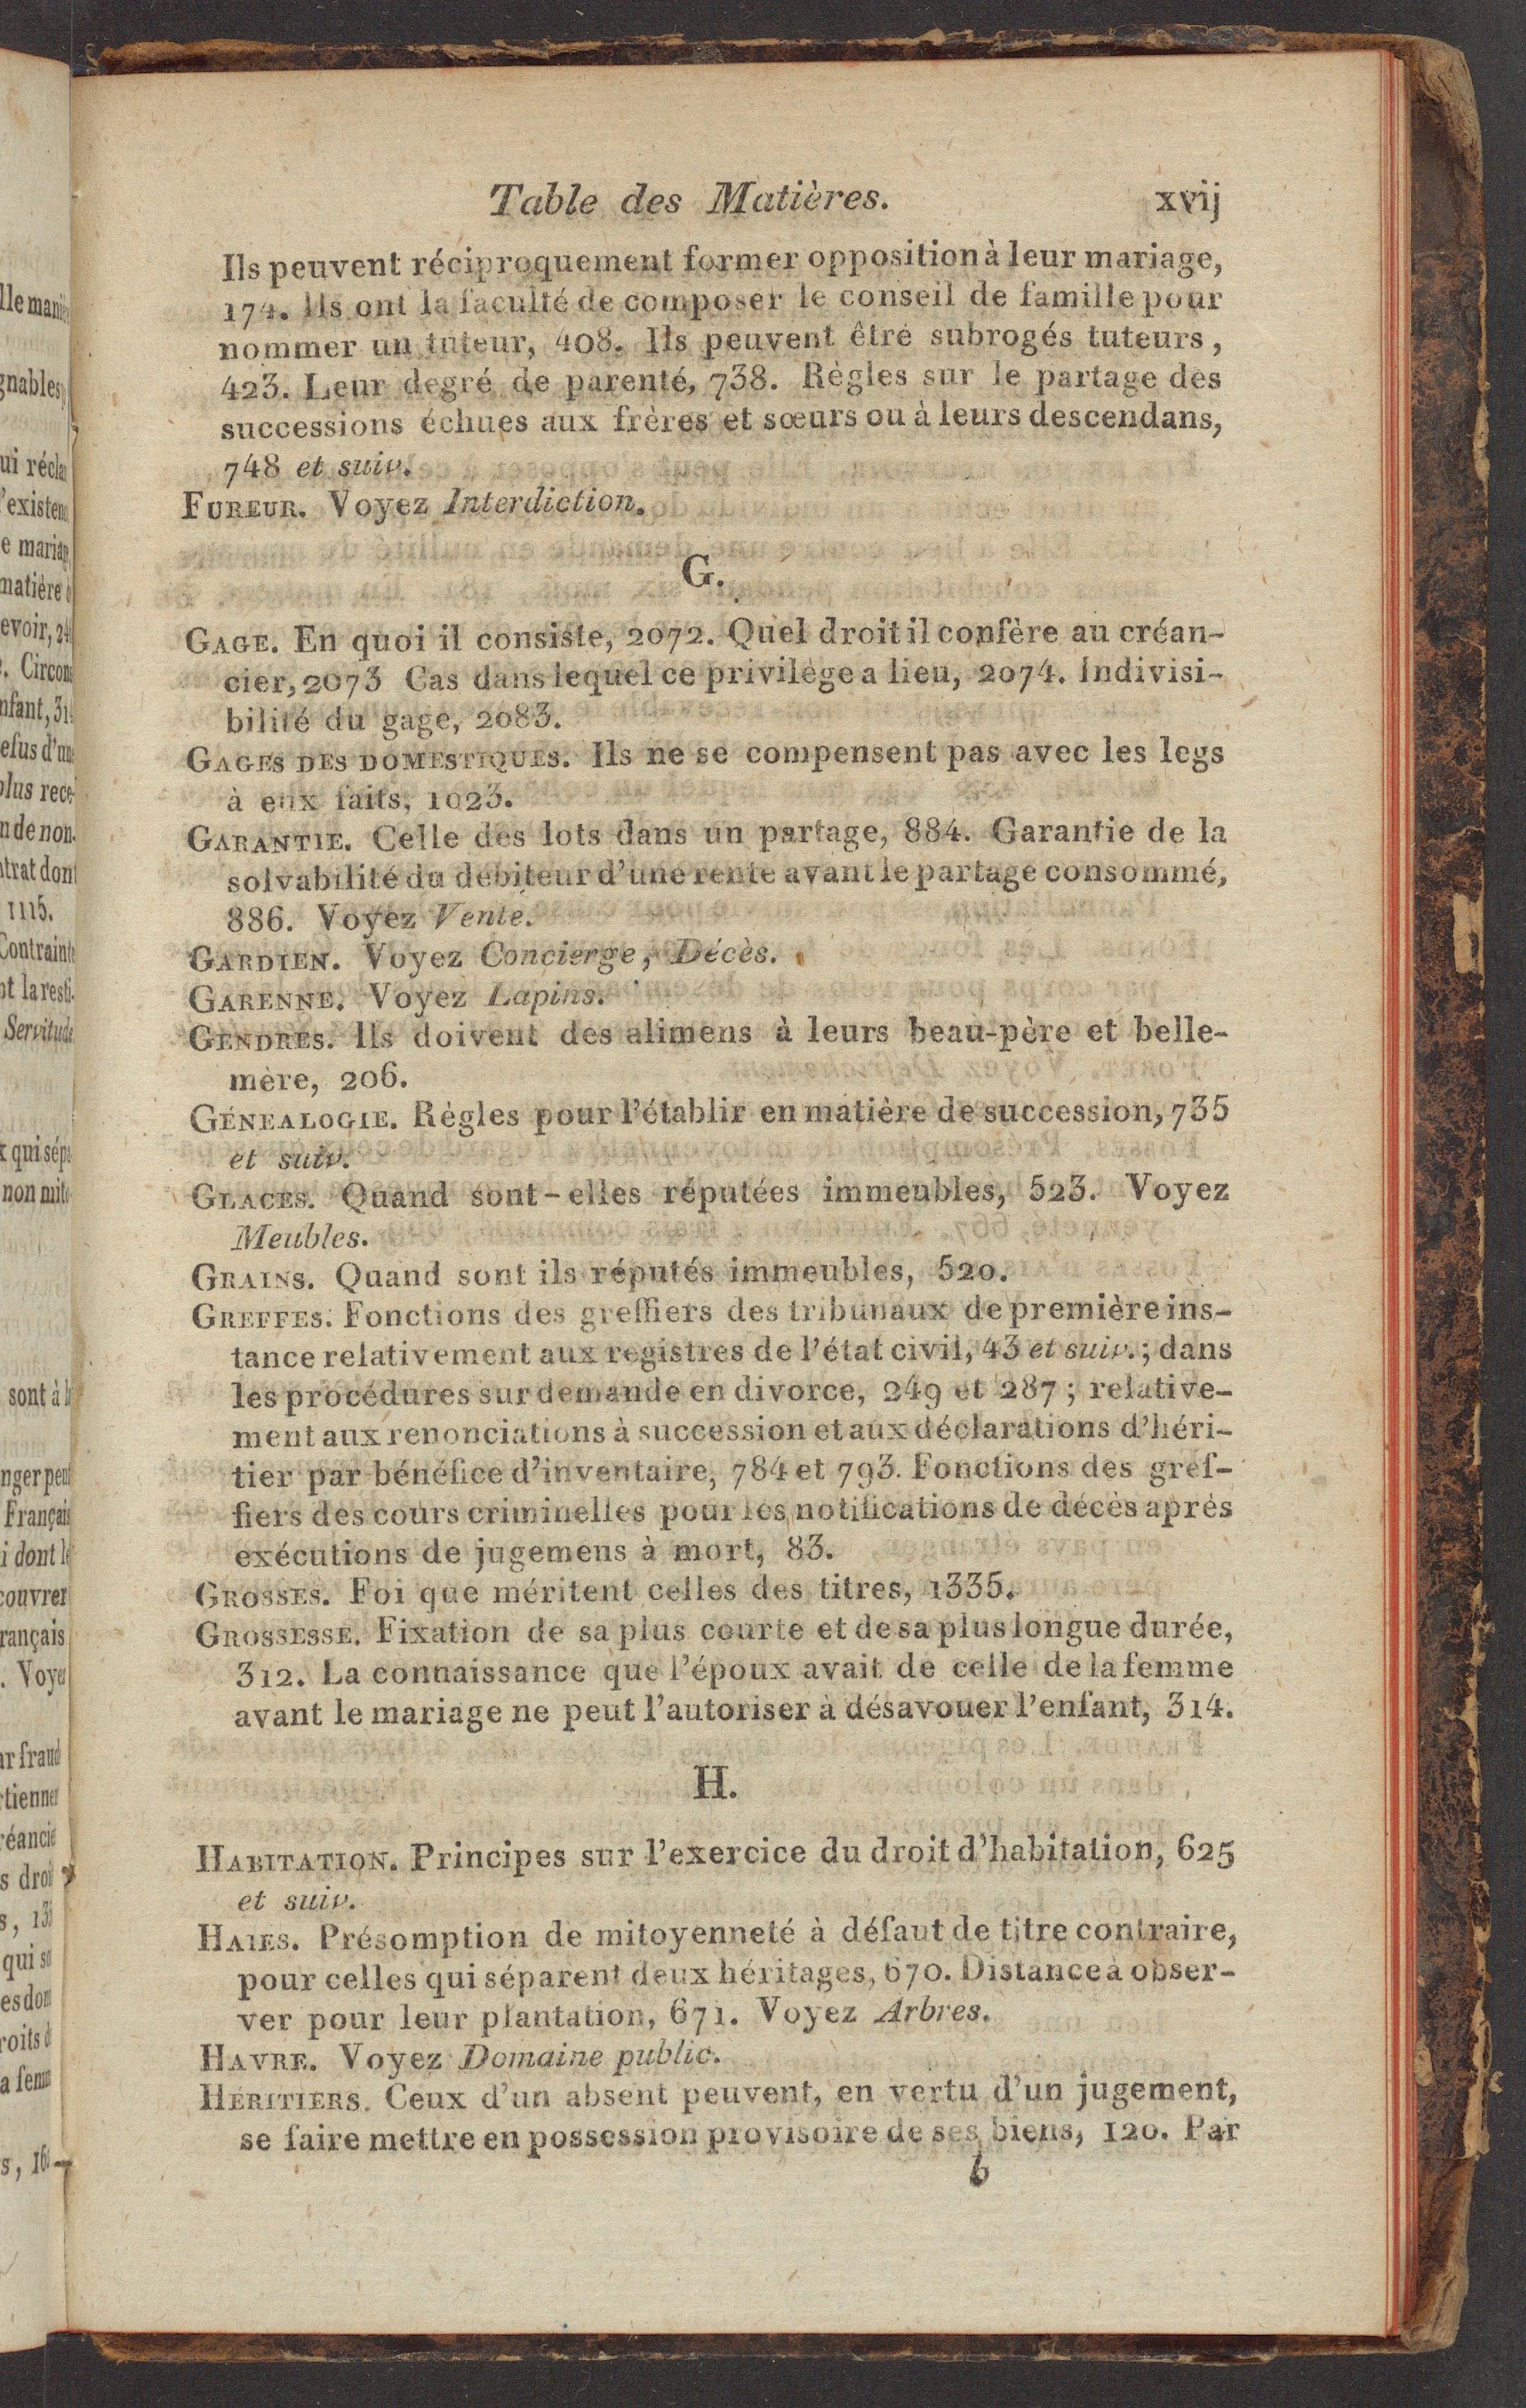 Table des Matières. xvij
Ils peuvent réciproquement former opposition à leur mariage,
174. Ils ont la faculté de composer le conseil de famille pour
nommer un tuteur, 408. Ils peuvent être subrogés tuteurs,
423. Leur degré de parenté, 738. Règles sur le partage des
successions échues aux frères et sœurs ou à leurs descendans,
748 et suiv.
FUREUR. Voyez Interdiction.
G.
GAGE. En quoi il consiste, 2072. Quel droit il confère au créan-
cier, 2073 Cas dans lequel ce privilège a lieu, 2074. Indivisi-
bilité du gage, 2083.
GAGES DES DOMESTIQUES. Ils ne se compensent pas avec les legs
à eux faits, 1023.
GARANTIE. Celle des lots dans un partage, 884. Garantie de la
solvabilité du débiteur d'une rente avant le partage consommé,
886. Voyez Vente.
GARDIEN. Voyez Concierge, Décès.
GARENNE. Voyez Lapins.
GENDRES. Ils doivent des alimens à leurs beau-père et belle-
mère, 206.
GÉNEALOGIE. Règles pour l'établir en matière de succession, 735
et suiv.
GLACES. Quand sont-elles réputées immeubles, 523. Voyez
Meubles.
GRAINS. Quand sont ils réputés immeubles, 520.
GREFFES. Fonctions des greffiers des tribunaux de première ins-
tance relativement aux registres de l'état civil, 43 et suiv.; dans
les procédures sur demande en divorce, 249 et 287; relative-
ment aux renonciations à succession et aux déclarations d'héri-
tier par bénéfice d'inventaire, 784 et 793. Fonctions des gref-
fiers des cours criminelles pour les notifications de décès après
exécutions de jugemens à mort, 83.
GROSSES. Foi que méritent celles des titres, 1335.
GROSSESSE. Fixation de sa plus courte et de sa plus longue durée,
312. La connaissance que l'époux avait de celle de la femme
avant le mariage ne peut l'autoriser à désavouer l'enfant, 314.
H.
HABITATION. Principes sur l'exercice du droit d'habitation, 625
et suiv.
HAIES. Présomption de mitoyenneté à défaut de titre contraire,
pour celles qui séparent deux héritages, 670. Distance à obser-
ver pour leur plantation, 671. Voyez Arbres.
HAVRE. Voyez Domaine public.
HÉRITIERS. Ceux d'un absent peuvent, en vertu d'un jugement,
se faire mettre en possession provisoire de ses biens, 120. Par
b